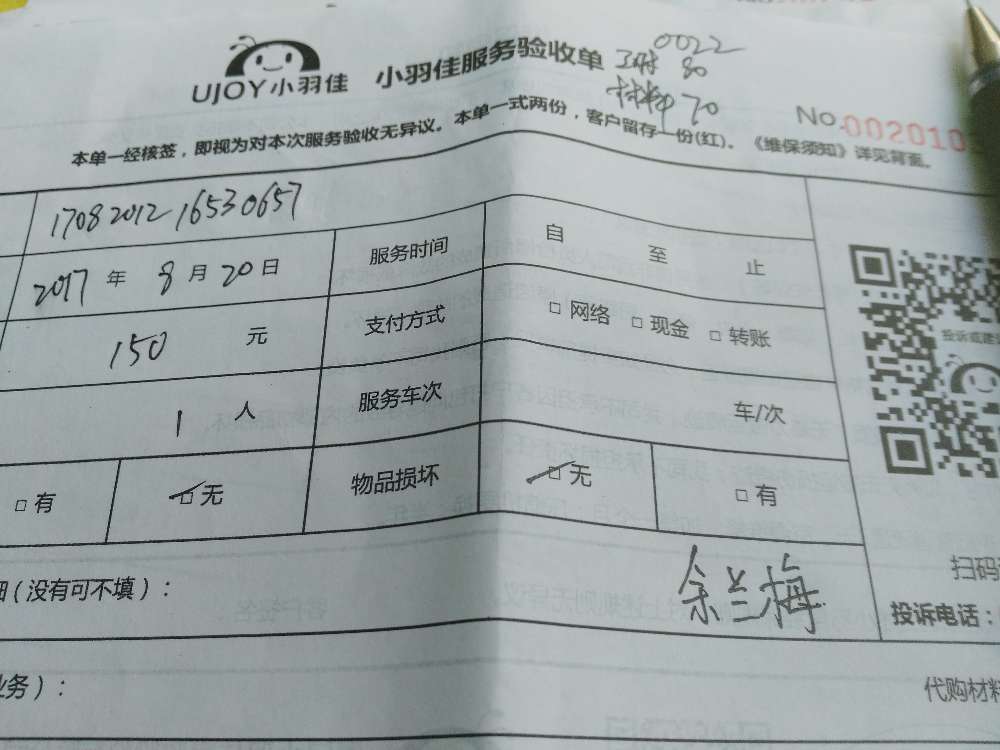 UJOY小羽佳 小羽佳服务验收单
0022
工时 80
材料 70
No.002010
本单一经核签，即视为对本次服务验收无异议。本单一式两份，客户留存一份(红)。《维保须知》详见背面。
1708201216530657
2017 年 8 月 20 日 服务时间 自 至 止
150 元 支付方式 □ 网络 □ 现金 □ 转账
1 人 服务车次 车/次
□ 有 □ 无 物品损坏 □ 无 □ 有
投诉或建
扫码
(没有可不填)：
余兰梅
投诉电话：
业务)：
代购材料